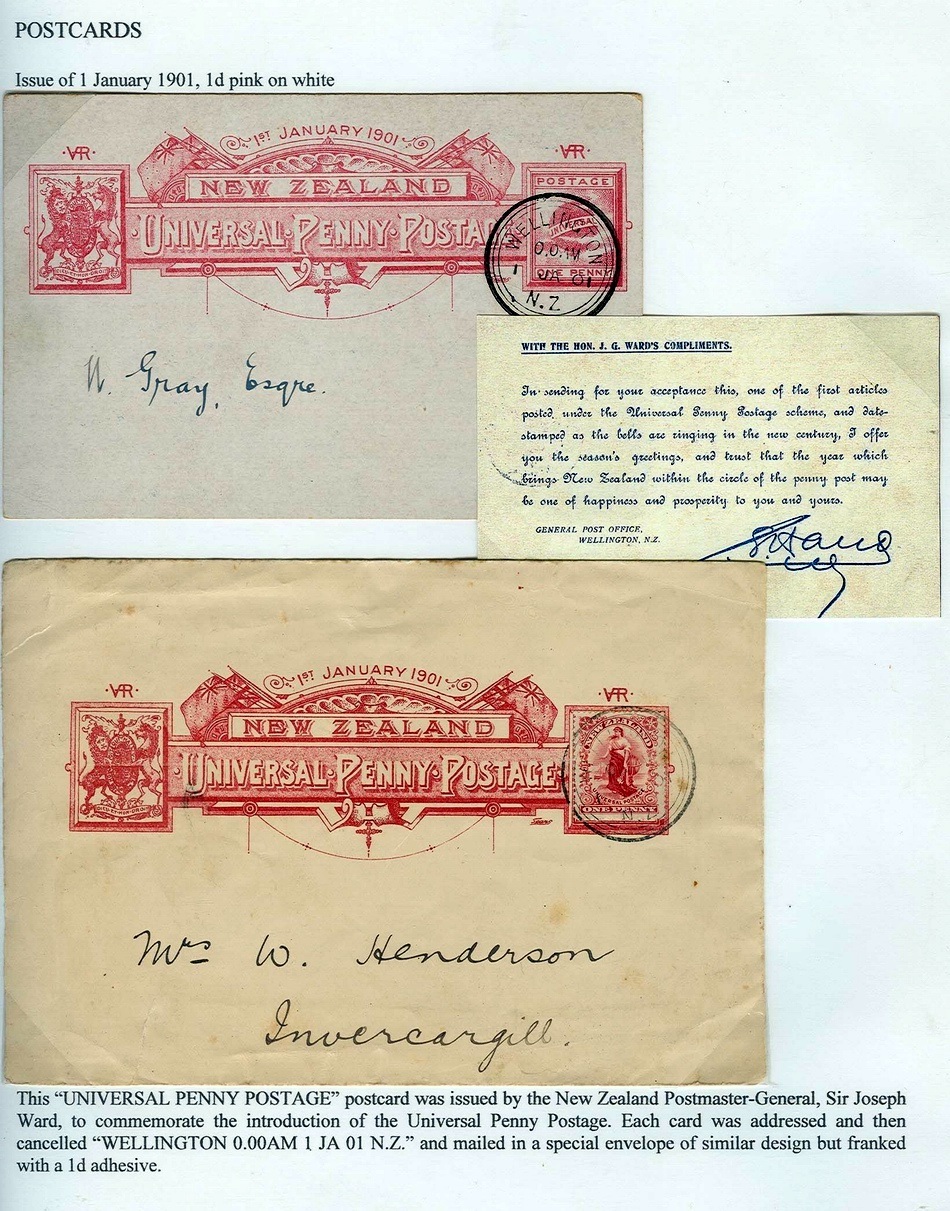 POSTCARDS
Issue of 1 January 1901, 1d pink on white
1ST JANUARY 1901
·VR· ·VR·
NEW ZEALAND
POSTAGE
UNIVERSAL·PENNY·POSTA
UNIVERSAL
ONE PENNY
WELLINGTON
0.0.AM
1 JA 01
N.Z
W. Gray, Esqre.
WITH THE HON. J. G. WARD'S COMPLIMENTS.
In sending for your acceptance this, one of the first articles
posted under the Universal Penny Postage scheme, and date-
stamped as the bells are ringing in the new century, I offer
you the season's greetings, and trust that the year which
brings New Zealand within the circle of the penny post may
be one of happiness and prosperity to you and yours.
GENERAL POST OFFICE,
WELLINGTON, N.Z.
1ST JANUARY 1901
·VR· ·VR·
NEW ZEALAND
·UNIVERSAL·PENNY·POSTAGE
ONE PENNY
N.Z
Mrs W. Henderson
Invercargill.
This “UNIVERSAL PENNY POSTAGE” postcard was issued by the New Zealand Postmaster-General, Sir Joseph
Ward, to commemorate the introduction of the Universal Penny Postage. Each card was addressed and then
cancelled “WELLINGTON 0.00AM 1 JA 01 N.Z.” and mailed in a special envelope of similar design but franked
with a 1d adhesive.